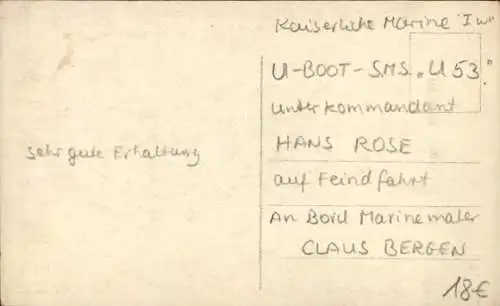 Kaiserliche Marine "I WW"
U-BOOT-S.M.S. "U 53"
unter kommandant
HANS ROSE
auf Feindfahrt
An Bord Marinemaler
CLAUS BERGEN
sehr gute Erhaltung
18€